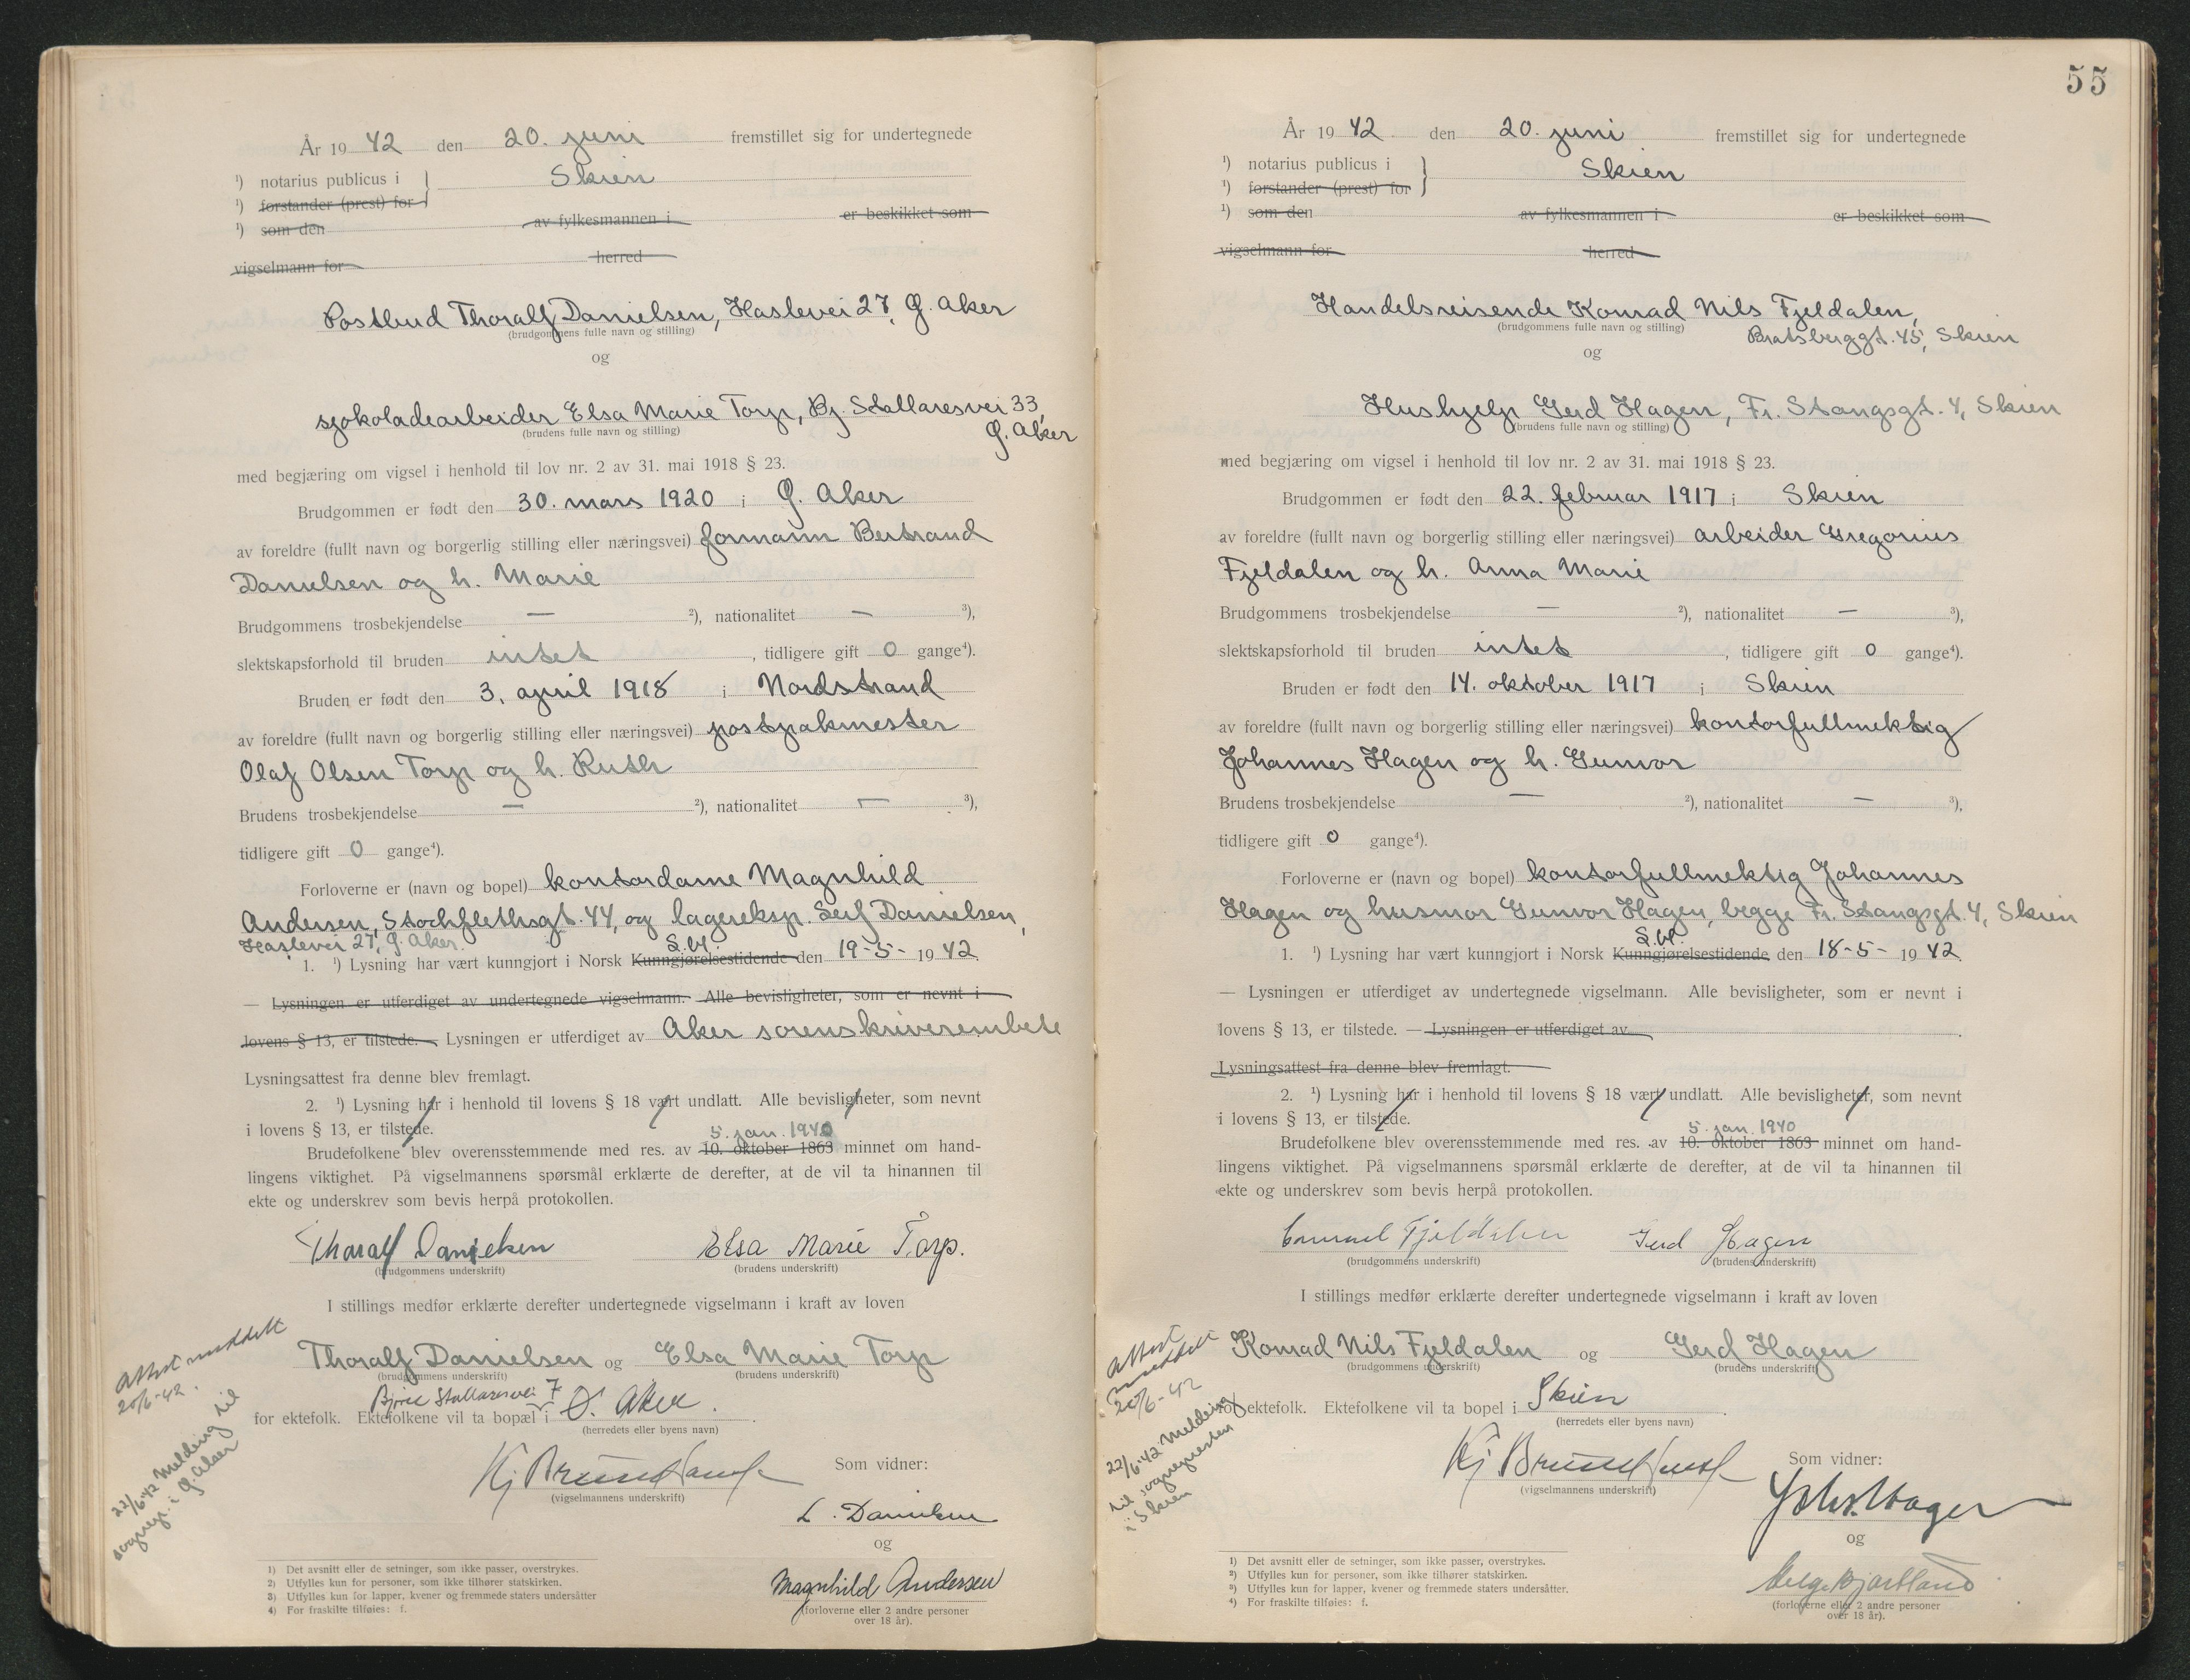 År 19 42 den 20. juni fremstillet sig for undertegnede
¹) notarius publicus i } Skien
¹) forstander (prest) for
¹) som den av fylkesmannen i er beskikket som
vigselmann for herred
Postbud Thoralf Danielsen, Haslevei 27, Ø. Aker
(brudgommens fulle navn og stilling)
og
sjokoladearbeider Elsa Marie Torp, Bj. Stallaresvei 33,
Ø. Aker
(brudens fulle navn og stilling)
med begjæring om vigsel i henhold til lov nr. 2 av 31. mai 1918 § 23.
Brudgommen er født den 30. mars 1920 i Ø. Aker
av foreldre (fullt navn og borgerlig stilling eller næringsvei) formann Bertrand
Danielsen og h. Marie
Brudgommens trosbekjendelse — ²), nationalitet — ³),
slektskapsforhold til bruden intet , tidligere gift 0 gange⁴).
Bruden er født den 3. april 1918 i Nordstrand
av foreldre (fullt navn og borgerlig stilling eller næringsvei) postpakmester
Olaf Olsen Torp og h. Ruth
Brudens trosbekjendelse — ²), nationalitet — ³),
tidligere gift 0 gange⁴).
Forloverne er (navn og bopel) kontordame Magnhild
Andersen, Stockflethsgt. 44, og lagereksp. Leif Danielsen,
Haslevei 27, Ø. Aker.
1. ¹) Lysning har vært kunngjort i Norsk Kunngjørelsestidende den 19-5- 19 42.
— Lysningen er utferdiget av undertegnede vigselmann. Alle bevisligheter, som er nevnt i
lovens § 13, er tilstede. — Lysningen er utferdiget av Aker sorenskriverembete
Lysningsattest fra denne blev fremlagt.
2. ¹) Lysning har i henhold til lovens § 18 vært undlatt. Alle bevisligheter, som nevnt
i lovens § 13, er tilstede.
5. jan. 1940
Brudefolkene blev overensstemmende med res. av 10. oktober 1863 minnet om hand-
lingens viktighet. På vigselmannens spørsmål erklærte de derefter, at de vil ta hinannen til
ekte og underskrev som bevis herpå protokollen.
Thoralf Danielsen Elsa Marie Torp.
(brudgommens underskrift) (brudens underskrift)
I stillings medfør erklærte derefter undertegnede vigselmann i kraft av loven
Thoralf Danielsen og Elsa Marie Torp
(brudgommens underskrift) (brudens underskrift)
Bjørn Stallaresvei 7
for ektefolk. Ektefolkene vil ta bopæl i Ø. Aker.
(herredets eller byens navn)
Attest meddelt
20/6-42.
22/6-42 melding til
sognepr. i Ø. Aker
(vigselmannens underskrift)
Som vidner:
L. Danielsen
og
Magnhild Andersen
(forloverne eller 2 andre personer
over 18 år).
1) Det avsnitt eller de setninger, som ikke passer, overstrykes.
2) Utfylles kun for personer, som ikke tilhører statskirken.
3) Utfylles kun for lapper, kvener og fremmede staters undersåtter
4) For fraskilte tilføies: f.
55
År 19 42 den 20. juni fremstillet sig for undertegnede
¹) notarius publicus i } Skien
¹) forstander (prest) for
¹) som den av fylkesmannen i er beskikket som
vigselmann for herred
Handelsreisende Konrad Nils Fjeldalen,
Bratsberggt. 45, Skien
(brudgommens fulle navn og stilling)
og
Hushjelp Gerd Hagen, Fr. Stangsgt. 4, Skien
(brudens fulle navn og stilling)
med begjæring om vigsel i henhold til lov nr. 2 av 31. mai 1918 § 23.
Brudgommen er født den 22. februar 1917 i Skien
av foreldre (fullt navn og borgerlig stilling eller næringsvei) arbeider Gregorius
Fjeldalen og h. Anna Marie
Brudgommens trosbekjendelse — ²), nationalitet — ³),
slektskapsforhold til bruden intet , tidligere gift 0 gange⁴).
Bruden er født den 14. oktober 1917 i Skien
av foreldre (fullt navn og borgerlig stilling eller næringsvei) kontorfullmektig
Johannes Hagen og h. Gunvor
Brudens trosbekjendelse — ²), nationalitet — ³),
tidligere gift 0 gange⁴).
Forloverne er (navn og bopel) kontorfullmektig Johannes
Hagen og husmor Gunvor Hagen, begge Fr. Stangsgt. 4, Skien
1. ¹) Lysning har vært kunngjort i Norsk Kunngjørelsestidende den 18-5- 19 42.
— Lysningen er utferdiget av undertegnede vigselmann. Alle bevisligheter, som er nevnt i
lovens § 13, er tilstede. — Lysningen er utferdiget av .
Lysningsattest fra denne blev fremlagt.
2. ¹) Lysning har i henhold til lovens § 18 vært undlatt. Alle bevisligheter, som nevnt
i lovens § 13, er tilstede.
5. jan. 1940
Brudefolkene blev overensstemmende med res. av 10. oktober 1863 minnet om hand-
lingens viktighet. På vigselmannens spørsmål erklærte de derefter, at de vil ta hinannen til
ekte og underskrev som bevis herpå protokollen.
Fjeldalen Gerd Hagen
(brudgommens underskrift) (brudens underskrift)
I stillings medfør erklærte derefter undertegnede vigselmann i kraft av loven
Konrad Nils Fjeldalen og Gerd Hagen
(brudgommens underskrift) (brudens underskrift)
for ektefolk. Ektefolkene vil ta bopel i Skien.
(herredets eller byens navn)
Attest
meddelt
20/6-42
22/6-42 melding
til sognepresten
i Skien
(vigselmannens underskrift)
Som vidner:
Johs. Hagen
og
(forloverne eller 2 andre personer
over 18 år).
¹) Det avsnitt eller de setninger, som ikke passer, overstrykes.
²) Utfylles kun for personer, som ikke tilhører statskirken.
³) Utfylles kun for lapper, kvener og fremmede staters undersåtter.
⁴) For fraskilte tilføies: f.